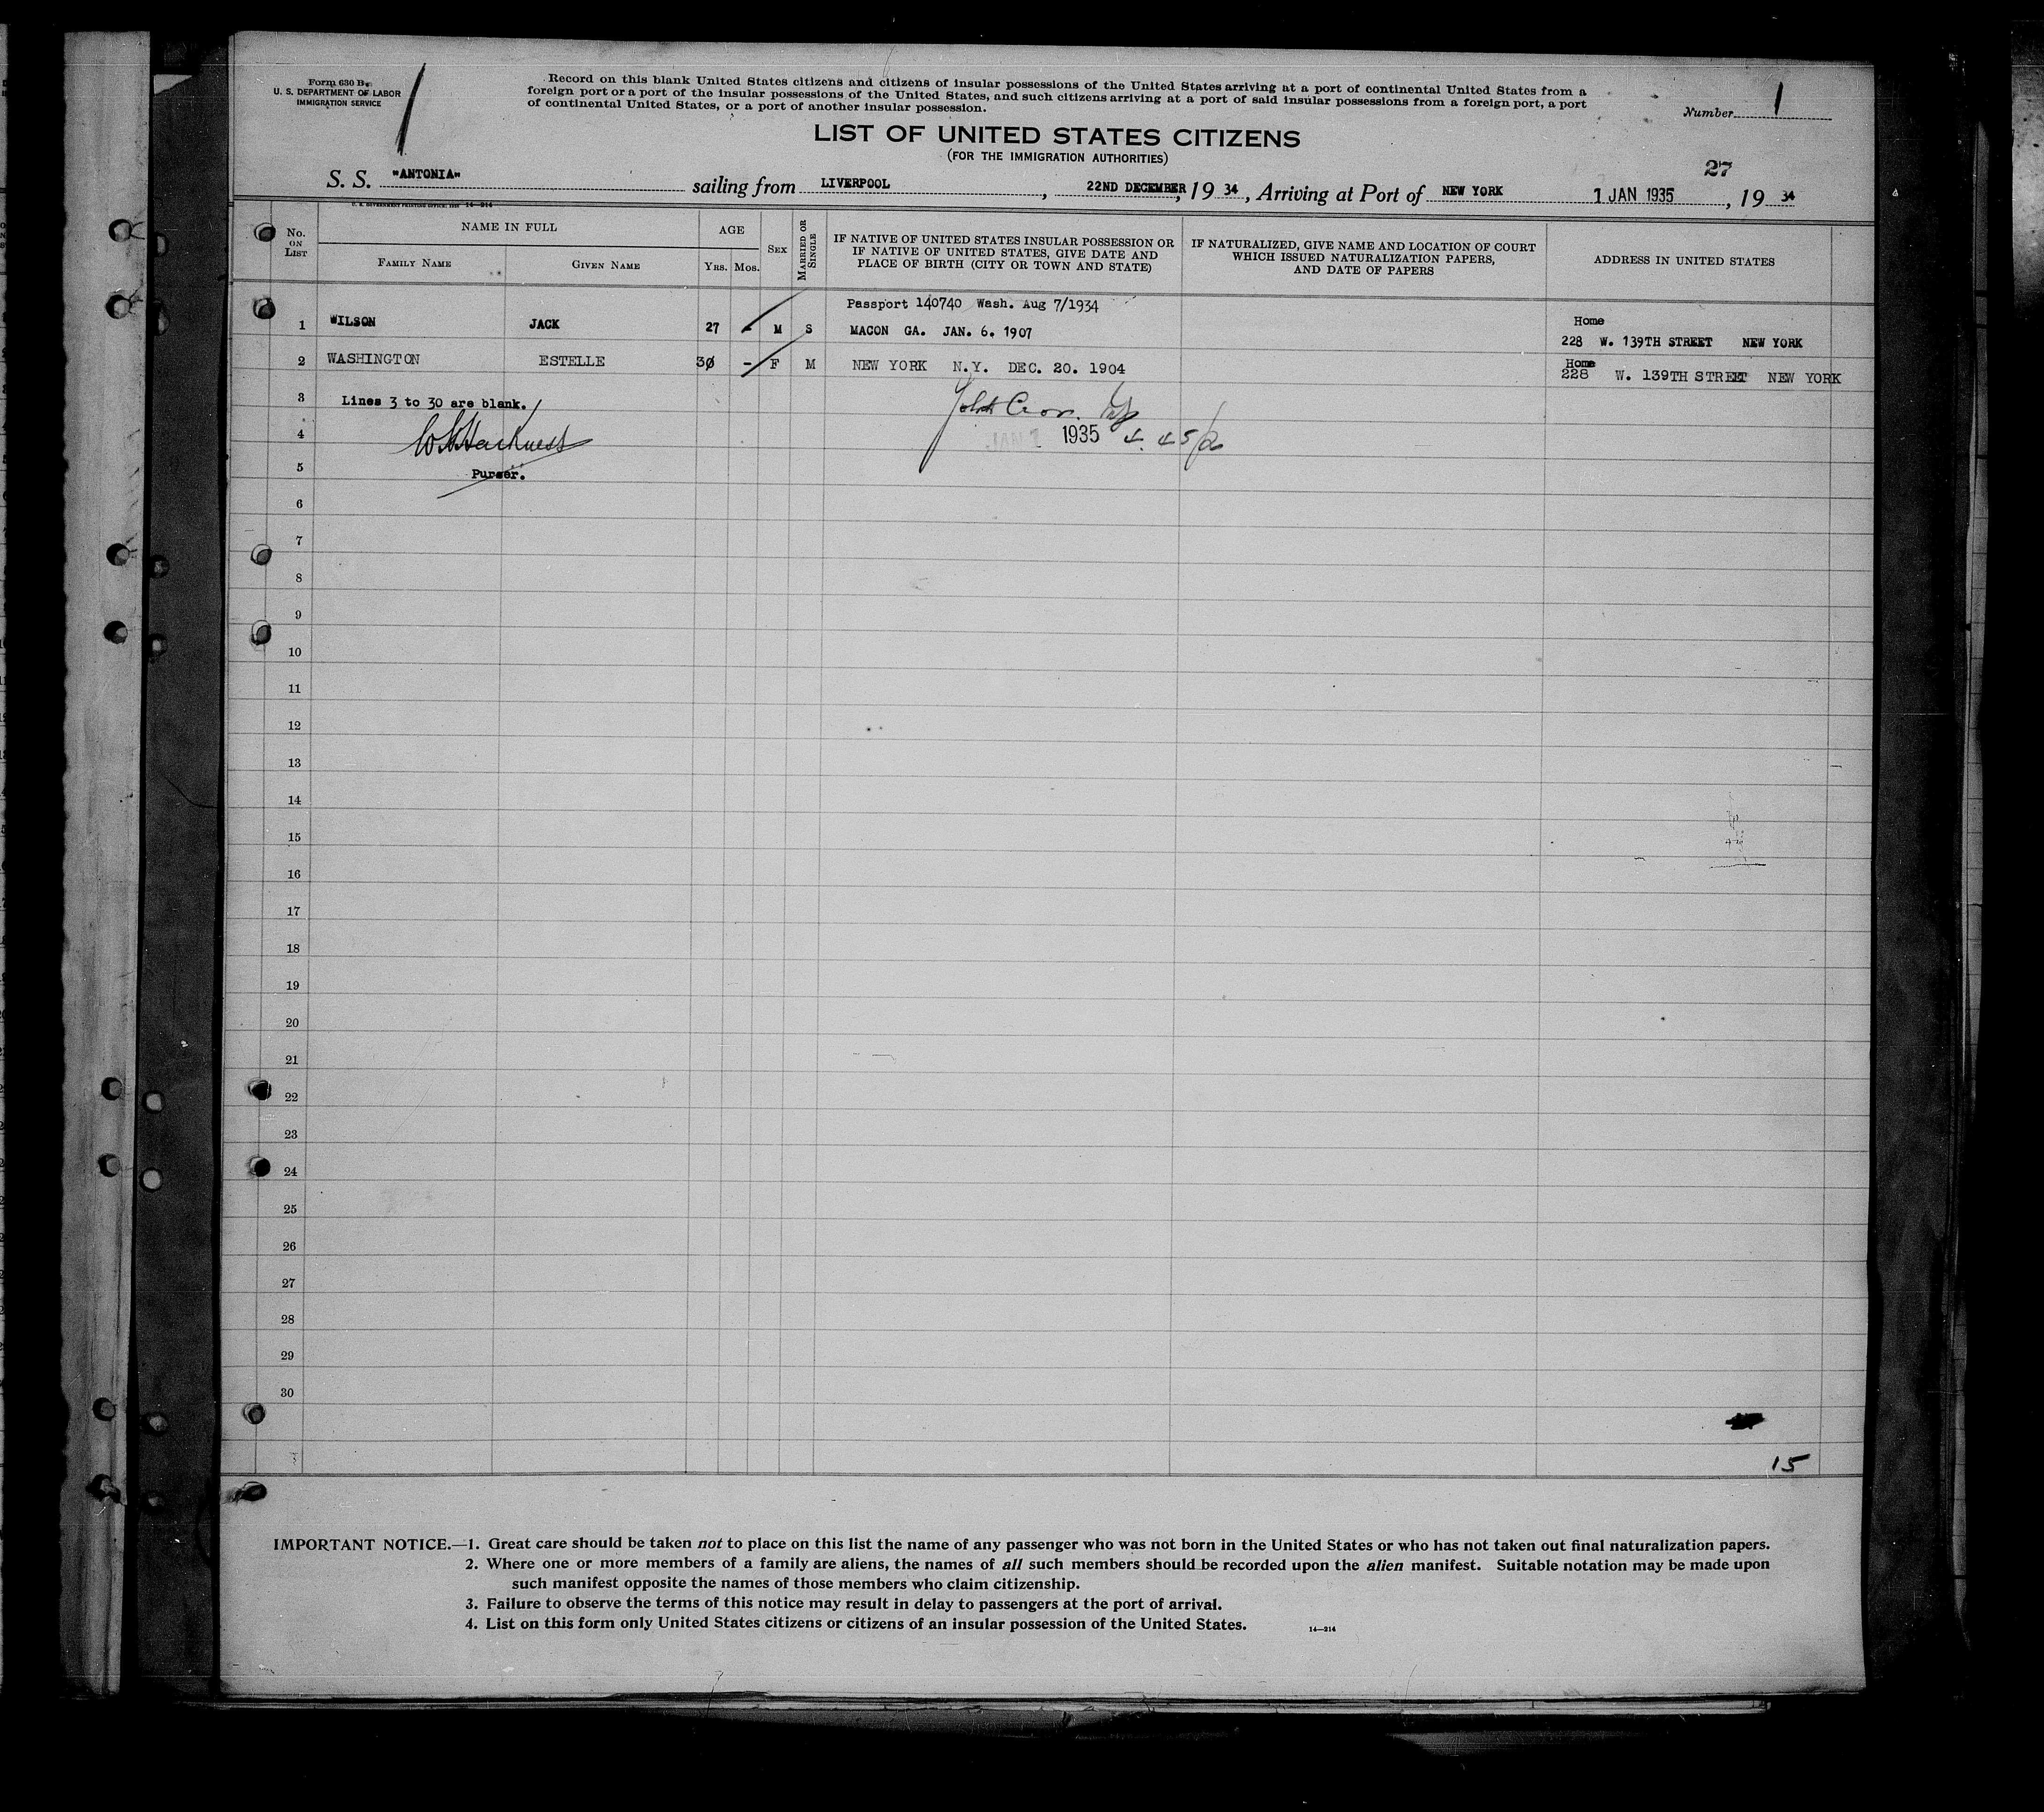 Form 630 B
U. S. DEPARTMENT OF LABOR
IMMIGRATION SERVICE
1
Record on this blank United States citizens and citizens of insular possessions of the United States arriving at a port of continental United States from a
foreign port or a port of the insular possessions of the United States, and such citizens arriving at a port of said insular possessions from a foreign port, a port
of continental United States, or a port of another insular possession.
Number 1
LIST OF UNITED STATES CITIZENS
(FOR THE IMMIGRATION AUTHORITIES)
27
S. S. "ANTONIA" sailing from LIVERPOOL, 22ND DECEMBER, 19 34, Arriving at Port of NEW YORK 1 JAN 1935, 19 34
U. S. GOVERNMENT PRINTING OFFICE 14—214
No. ON LIST
NAME IN FULL
FAMILY NAME
GIVEN NAME
AGE
YRS.
MOS.
SEX
MARRIED OR SINGLE
IF NATIVE OF UNITED STATES INSULAR POSSESSION OR
IF NATIVE OF UNITED STATES, GIVE DATE AND
PLACE OF BIRTH (CITY OR TOWN AND STATE)
IF NATURALIZED, GIVE NAME AND LOCATION OF COURT
WHICH ISSUED NATURALIZATION PAPERS,
AND DATE OF PAPERS
ADDRESS IN UNITED STATES
Passport 140740 Wash. Aug 7/1934
Home
1 WILSON JACK 27 - M S MACON GA. JAN. 6. 1907 228 W. 139TH STREET NEW YORK
Home
2 WASHINGTON ESTELLE 30 - F M NEW YORK N.Y. DEC. 20. 1904 228 W. 139TH STREET NEW YORK
3 Lines 3 to 30 are blank.
4 JAN 1 1935
5 Purser.
6
7
8
9
10
11
12
13
14
15
16
17
18
19
20
21
22
23
24
25
26
27
28
29
30
15
IMPORTANT NOTICE.—1. Great care should be taken not to place on this list the name of any passenger who was not born in the United States or who has not taken out final naturalization papers.
2. Where one or more members of a family are aliens, the names of all such members should be recorded upon the alien manifest. Suitable notation may be made upon
such manifest opposite the names of those members who claim citizenship.
3. Failure to observe the terms of this notice may result in delay to passengers at the port of arrival.
4. List on this form only United States citizens or citizens of an insular possession of the United States.
14—214